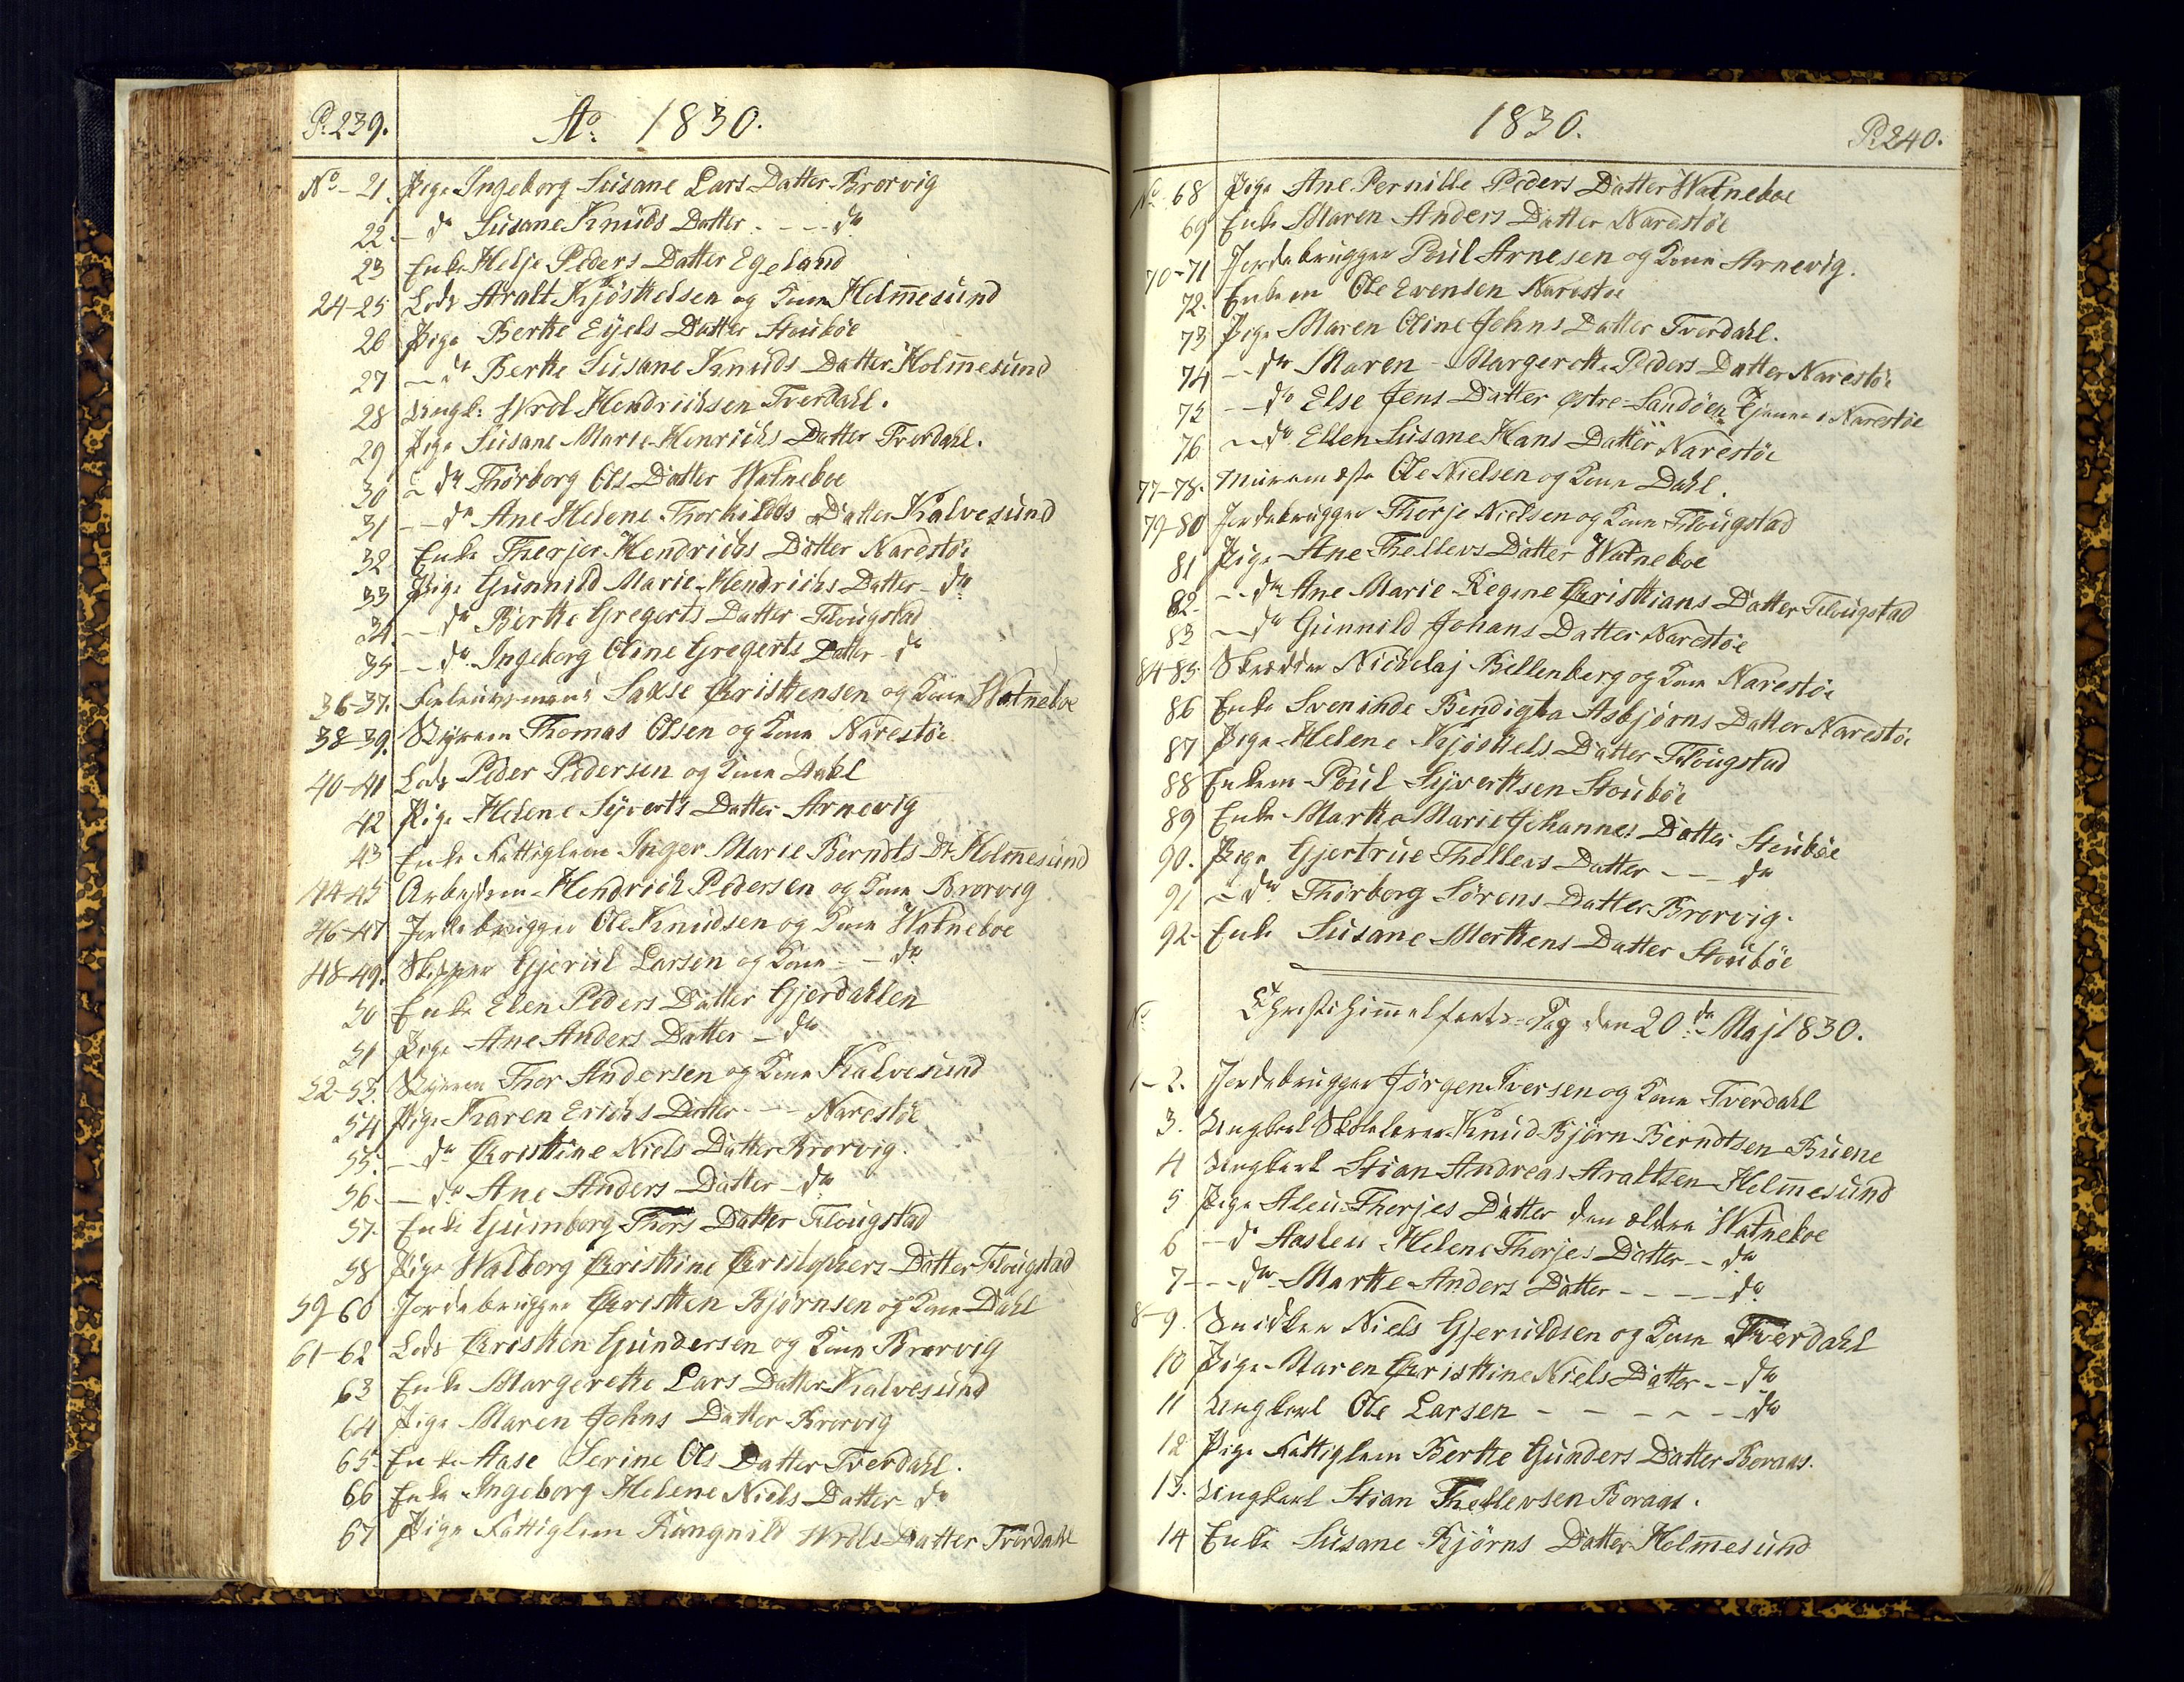 P. 239.
Ao 1830.
No 21. Pige Ingeborg Susane Lars Datter Brorvig
22. - do Susane Knuds Datter - - - do
23 Enke Helje Peders Datter Egeland
24-25 Lods Aralt Kjøstelsen og Kone Holmesund
26 Pige Berthe Eyels Datter Stoubøe
27 - do Berthe Susane Knuds Datter Holmesund
28 Ungk: Wrol Hendrichsen Tverdahl.
29 Pige Susane Marie Henrichs Datter Tverdahl.
30 - do Thørborg Ols Datter Watneboe
31 - do Ane Helene Thorkilds Datter Kalvesund
32 Enke Therjer Hendrichs Datter Narestøe
33 Pige Gunnild Marie Hendrichs Datter - do
34. - do Berthe Gregerts Datter Flougstad
35 - do Ingeborg Oline Gregerts Datter - do
36-37. Saxse Christensen og Kone Watneboe
38-39. Thomas Olsen og Kone Narestøe
40-41 Lods Peder Pedersen og Kone Dahl
42 Pige Helene Syverts Datter Arnevig
43 Enke Fattiglem Inger Marie Berndts Dr Holmesund
44-45 Arbejdsm Hendrich Pedersen og Kone Brorvig
46-47 Jordebrugger Ole Knudsen og Kone Watneboe
48-49. Skipper Gjerul Larsen og Kone - - do
50 Enke Elen Peders Datter Gjerdahlen
51 Pige Ane Anders Datter - do
52-53. Thor Andersen og Kone Kalvesund
54 Pige Karen Erichs Datter - - - Narestøe
55. - do Christine Niels Datter Brorvig.
56. - do Ane Anders Datter - do
57. Enke Gumborg Thors Datter Flougstad
58 Pige Walborg Christine Christophers Datter Flougstad
59-60 Jordebrugger Christen Bjørnsen og Kone Dahl
61-62 Lods Christen Gundersen og Kone Brorvig
63 Enke Margerethe Lars Datter Kalvesund
64 Pige Maren Johns Datter Brorvig
65. Enke Aase Serine Ols Datter Tverdahl.
66 Enke Ingeborg Helene Niels Datter - do
67 Pige Fattiglem Rangnild Wrols Datter Tverdahl
1830.
P. 240.
No 68 Pige Ane Pernille Peders Datter Watneboe
69 Enke Maren Anders Datter Narestøe
70-71 Jordebrugger Poul Arnesen og Kone Arnevig.
72. Enkem Ole Evensen Narestøe
73 Pige Maren Oline Johns Datter Tverdahl.
74 - do Maren Margerethe Peders Datter Narestøe
75 - do Else Jens Datter østre Sandøen Tjenner i Narestøe
76 - do Ellen Susane Hans Datter Narestøe
77-78. Muremester Ole Nielsen og Kone Dahl.
79-80 Jordebrugger Thorje Nielsen og Kone Flougstad
81 Pige Ane Thellevs Datter Watneboe
82- - do Ane Marie Regine Christians Datter Flougstad
83 - do Gunnild Johans Datter Narestøe
84-85. Skredder Nichelaj Bellenberg og Kone Narestøe
86 Enke Bendigta Asbjørns Datter Narestøe
87 Pige Helene Kjøstels Datter Flougstad
88 Enkem Poul Syvertsen Stoubøe
89 Enke Marthe Marie Johannes Datter Stoubøe
90. Pige Gjertrue Thellevs Datter - - - do
91 - do Thørborg Sørens Datter Brorvig.
92- Enke Susane Mortens Datter Stoubøe
No Christi Himmelfarts-Dag den 20de Maj 1830.
1-2. Jordebrugger Jørgen Iversen og Kone Tverdahl
3. Ungkarl Skolelærer Knud Bjørn Berndtsen Buene
4 Ungkarl Stian Andreas Araltsen Holmesund
5 Pige Aleu Thorjes Datter den ældre Watneboe
6 - do Aasleu Helene Thorjes Datter - - do
7 - - do Marthe Anders Datter - - - - - do
8-9. Snidker Niels Gjeruldsen og Kone Tverdahl
10 Pige Maren Christine Niels Datter - - do
11 Ungkarl Ole Larsen - - - - - - do
12 Pige Fattiglem Berthe Gunders Datter Boraas.
13. Ungkarl Stian Thellevsen Boraas.
14 Enke Susane Bjørns Datter Holmesund